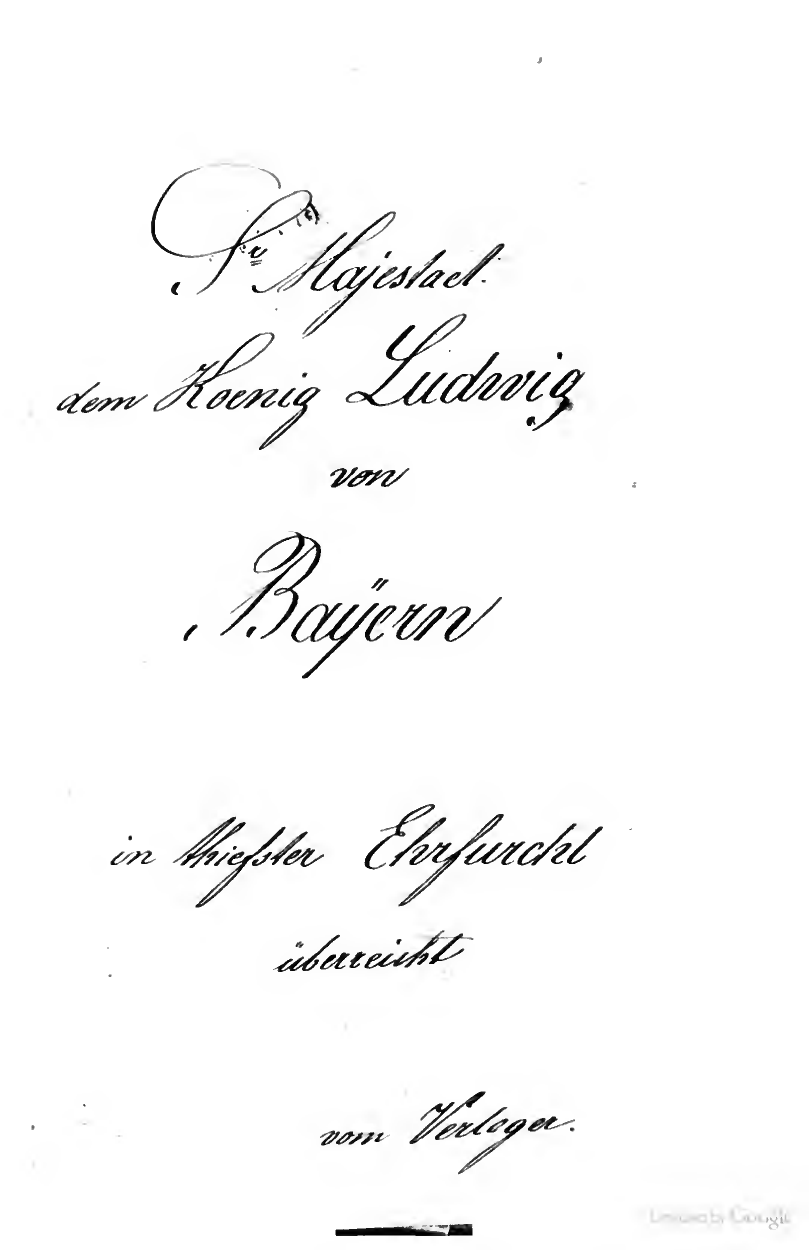 Sr Majestaet.
dem Koenig Ludwig
von
Baÿern
in thiefster Ehrfurcht
überreicht
vom Verleger.
Digitized by Google